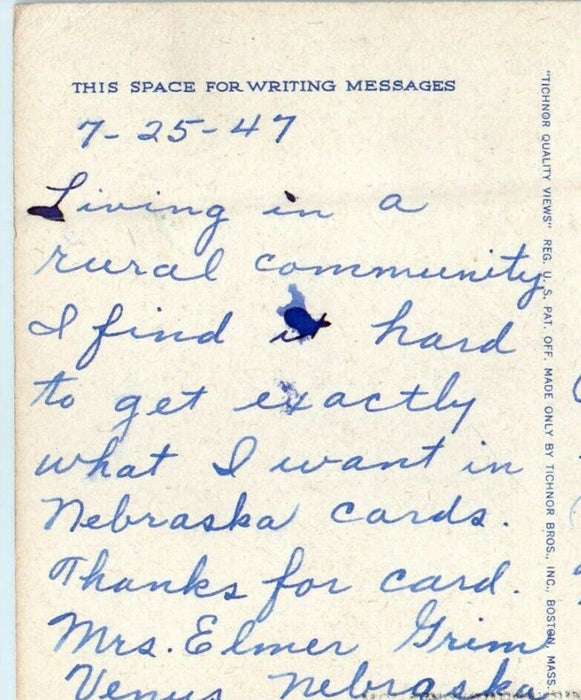 THIS SPACE FOR WRITING MESSAGES
7-25-47
Living in a
rural community
I find it hard
to get exactly
what I want in
Nebraska cards.
Thanks for card.
Mrs. Elmer Grim
Venus, Nebraska
"TICHNOR QUALITY VIEWS" REG. U. S. PAT. OFF. MADE ONLY BY TICHNOR BROS., INC., BOSTON, MASS.